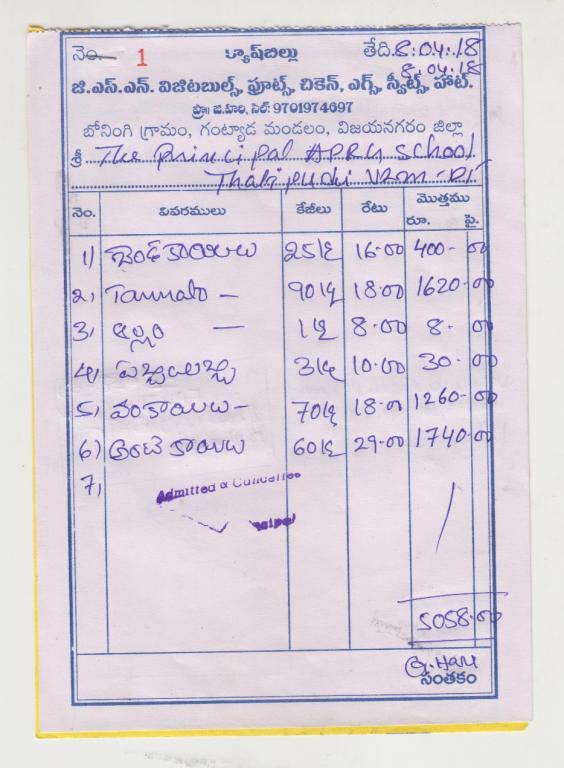 నెం. 1 క్యాష్‌బిల్లు తేది. 8.04.18
8.04.18
జి.ఎస్.ఎన్. విజిటబుల్స్, ఫ్రూట్స్, చికెన్, ఎగ్స్, స్వీట్స్, హాట్.
ప్రొ॥ జి.హరి, సెల్: 9701974697
బోనింగి గ్రామం, గంట్యాడ మండలం, విజయనగరం జిల్లా
శ్రీ The principal APRG School
Thatipudi VZM-DT
నెం. వివరములు కేజీలు రేటు మొత్తము రూ. పై.
1) బెండకాయలు 25kg 16-00 400-00
2, Tammato - 90kg 18-00 1620-00
3, అల్లం - 1kg 8-00 8-00
4, 3kg 10-00 30-00
5, వంకాయలు - 70kg 18-0 1260-00
6) అంటి కాయలు 60kg 29-00 1740-00
7,
Admitted & Cancelled
5058-00
G. Hari
సంతకం